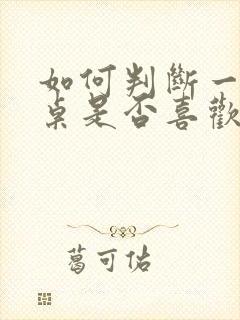 如何判斷一
桌是否喜歡
葛可佑